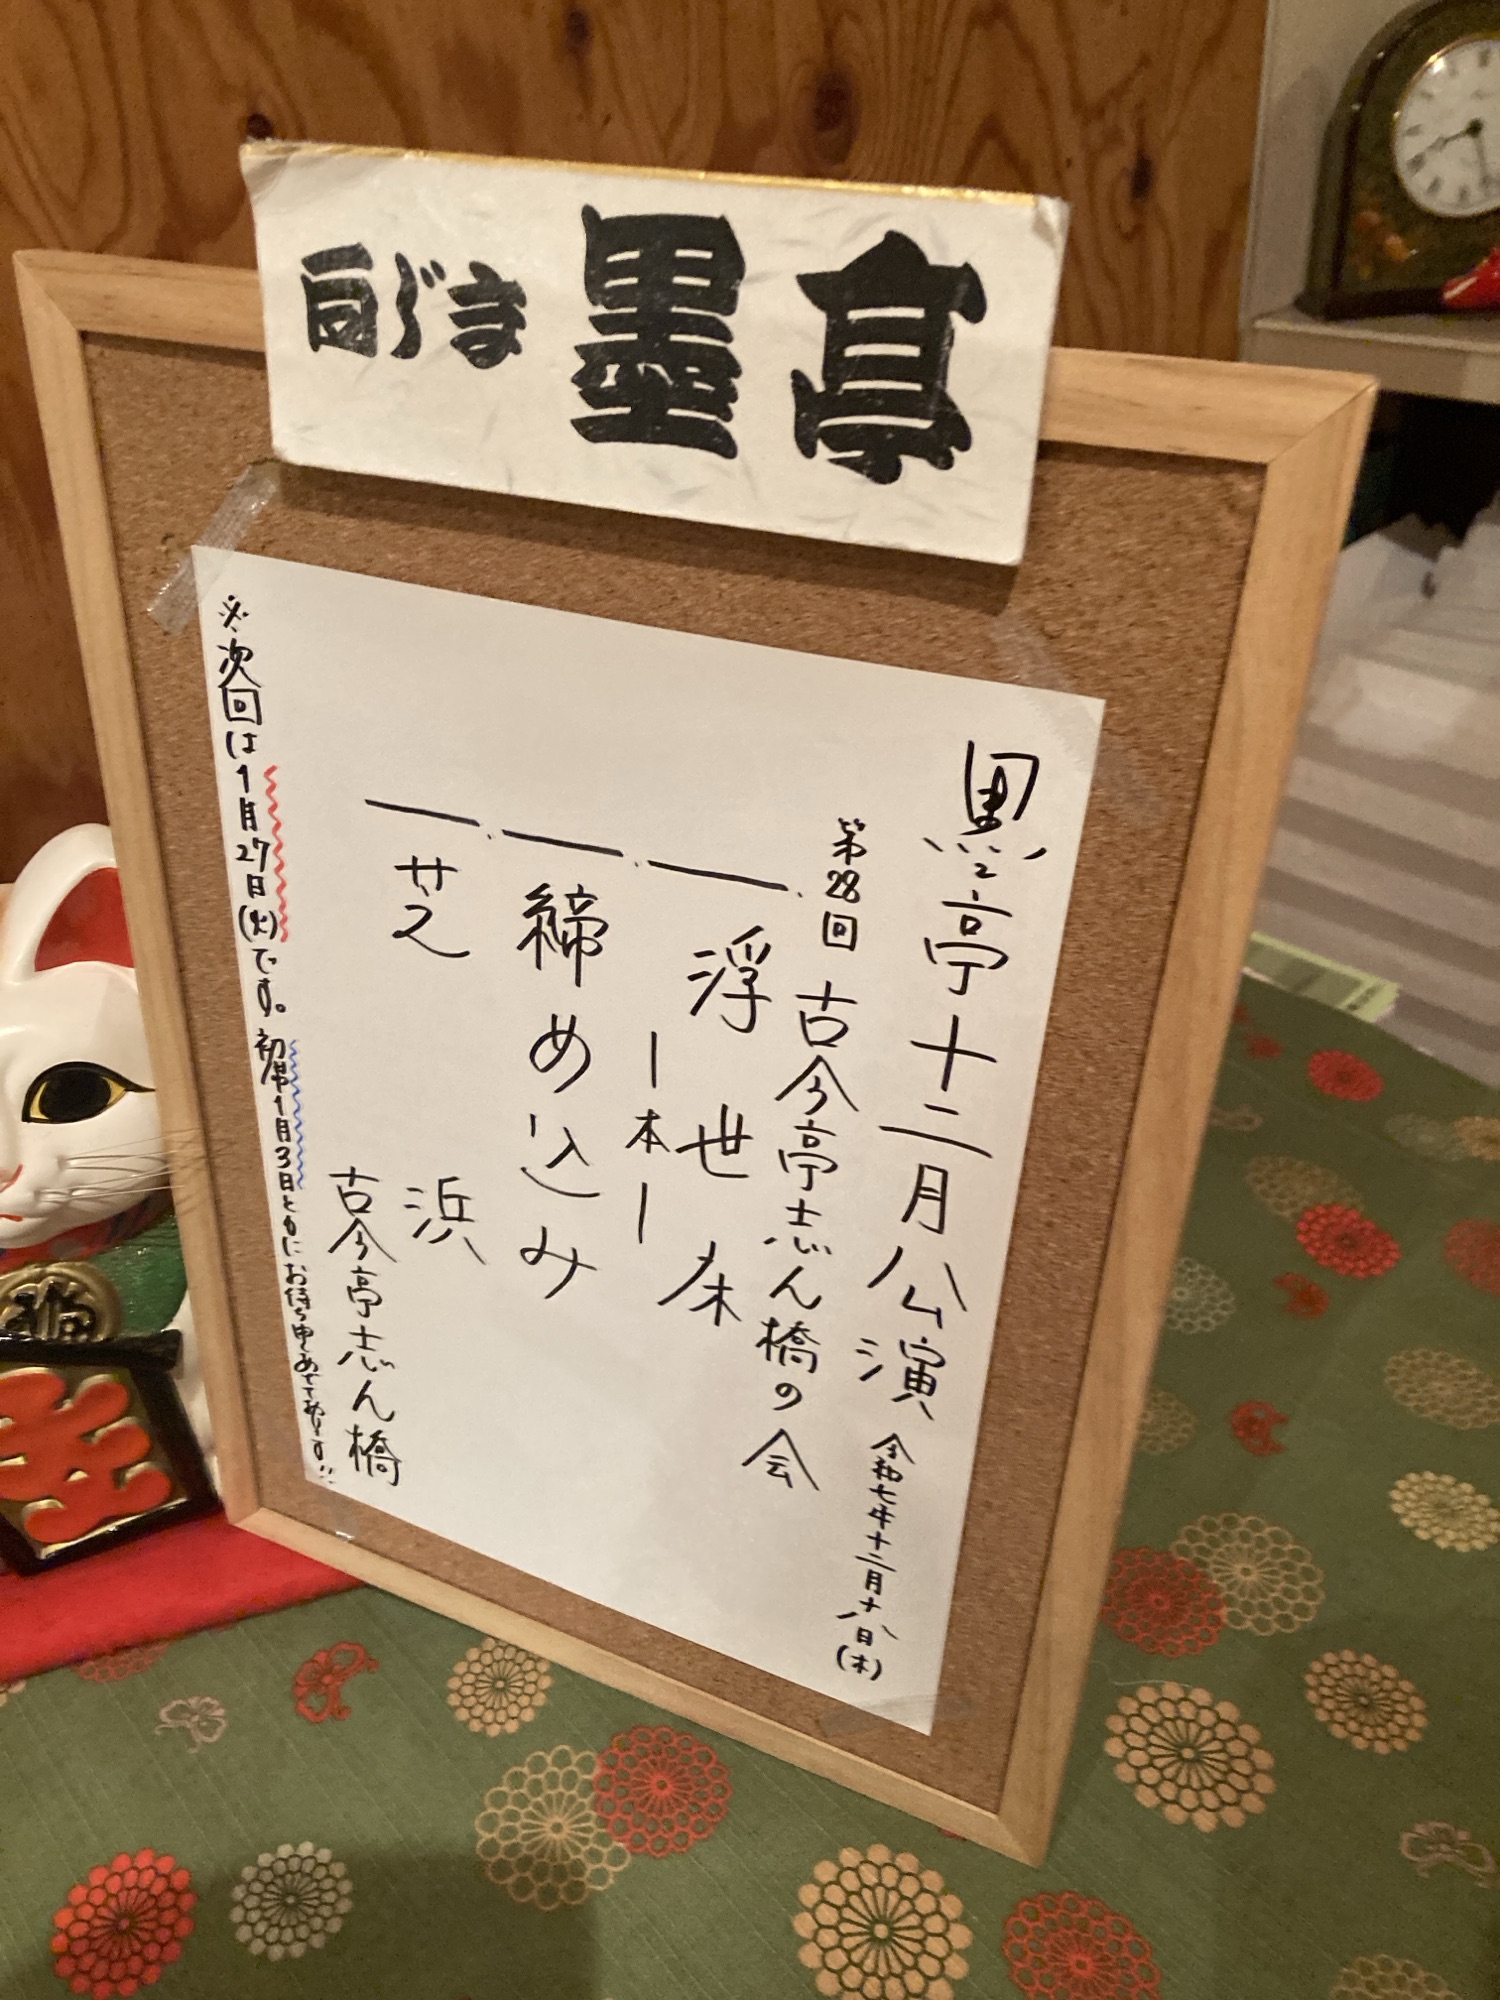 向じま 墨亭
墨亭十二月公演 令和七年十二月十八日(木)
第28回 古今亭志ん橋の会
一、浮世床
ー本ー
一、締め込み
一、芝浜
古今亭志ん橋
※次回は1月27日(火)です。初席1月3日ともにお待ち申しあげております!!